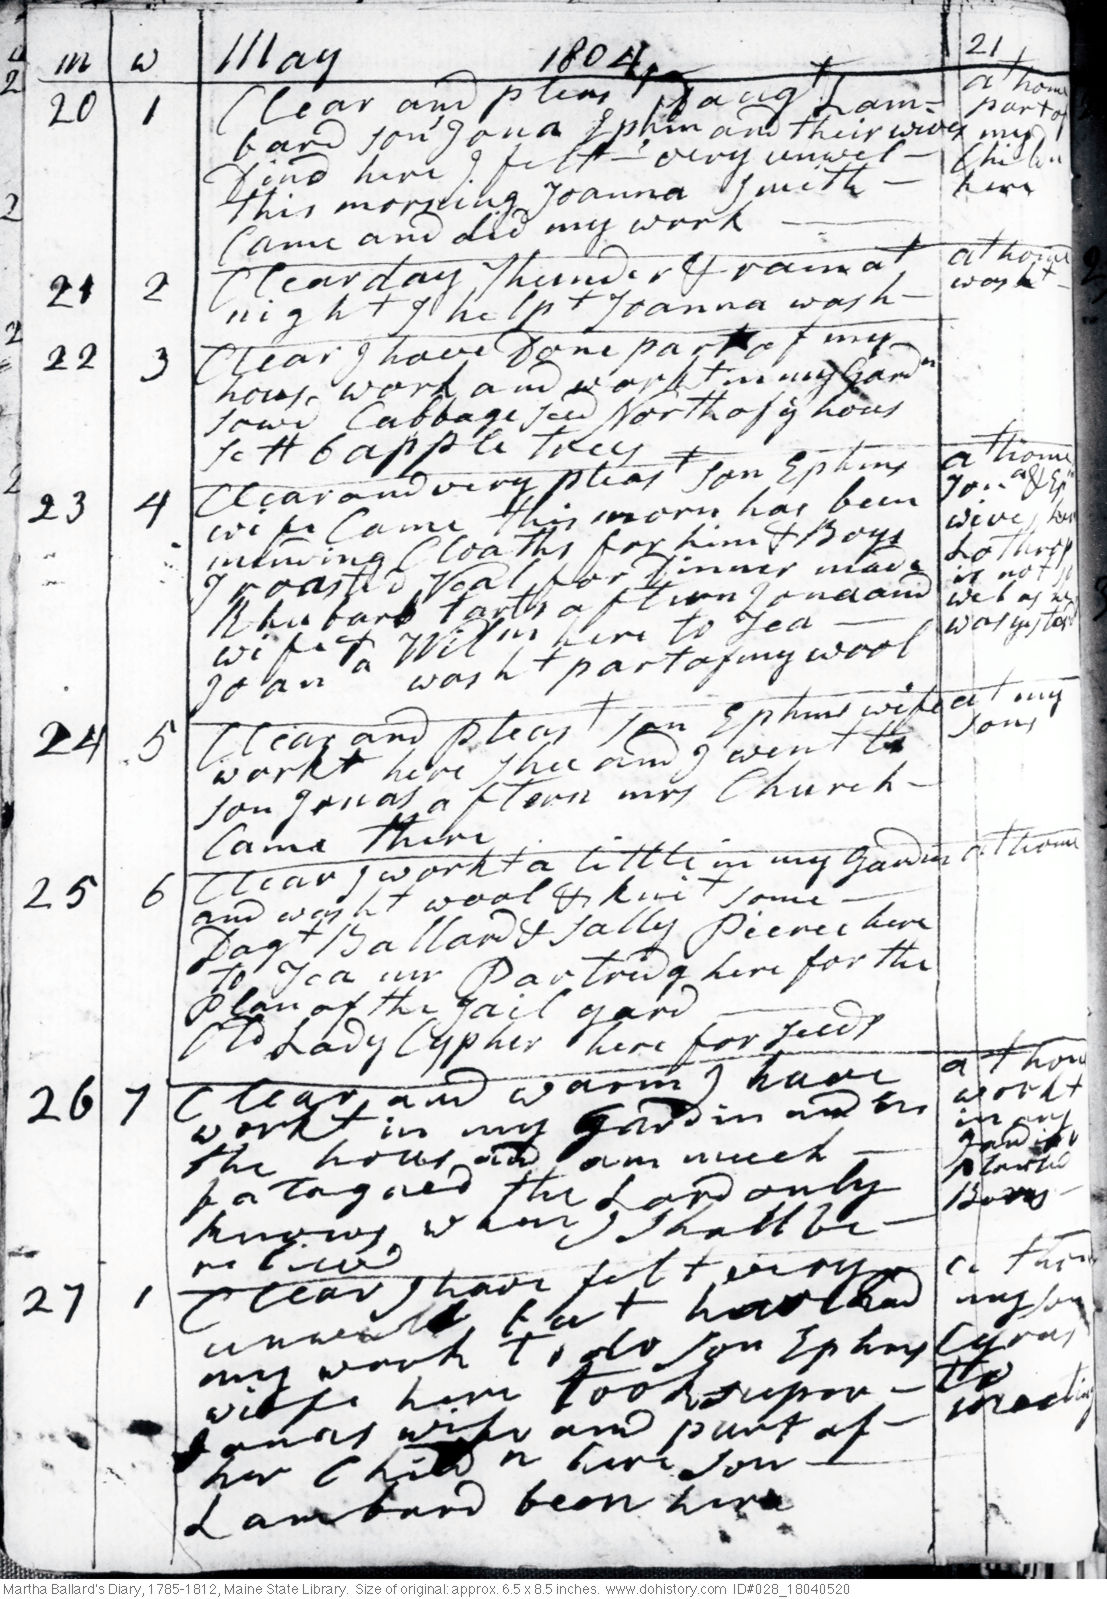 m w May 1804 21
20 1 Clear and pleast Daugt Lam=
bard son Jona Ephm and their wives
Dind here I felt very unwel
this morning Joanna Smith
Came and did my work
at home
part of
my
Childn
here
21 2 Clear day Thunder & rain at
night I helpt Joanna wash
at home
washt
22 3 Clear I have Done part of my
hous work and workt in my Gardn
sowd Cabbage seed North of ye hous
sett 6 apple trees
23 4 Clear and very pleast son Ephms
wife Came this morn has been
mending Cloaths for him & Boys
I roasted Veal for Dinner made
Rhubarb tarts aftern Jona and
wife & Wilm here to Tea
Joana washt part of my wool
at home
Jona & Ep
wives here
Lothrop
is not so
wel as he
was yesterd
24 5 Clear and pleast son Ephms wife
workt here shee and I went to
son Jonas aftern mrs Church
Came there
at my
sons
25 6 Clear I workt a little in my Gardin
and washt wool & knit some
Dagt Ballard & Sally Pierce here
to Tea mr Partridg here for the
Plan of the gail yard
Old Lady Cypher here for seeds
at home
26 7 Clear and warm I have
workt in my gardin and in
the hous and am much
fatagued the Lord only
knows when I shall be
relievd
at hom
workt
in my
gardin
planted
Beens
27 1 Clear I have felt very
unwell but have had
my work to do son Ephms
wife here took super
Jonas wife and part of
her Childn here son
Lambard been here
at hom
my son
Cyrus
to
meeting
Martha Ballard's Diary, 1785-1812, Maine State Library. Size of original: approx. 6.5 x 8.5 inches. www.dohistory.com ID#028_18040520